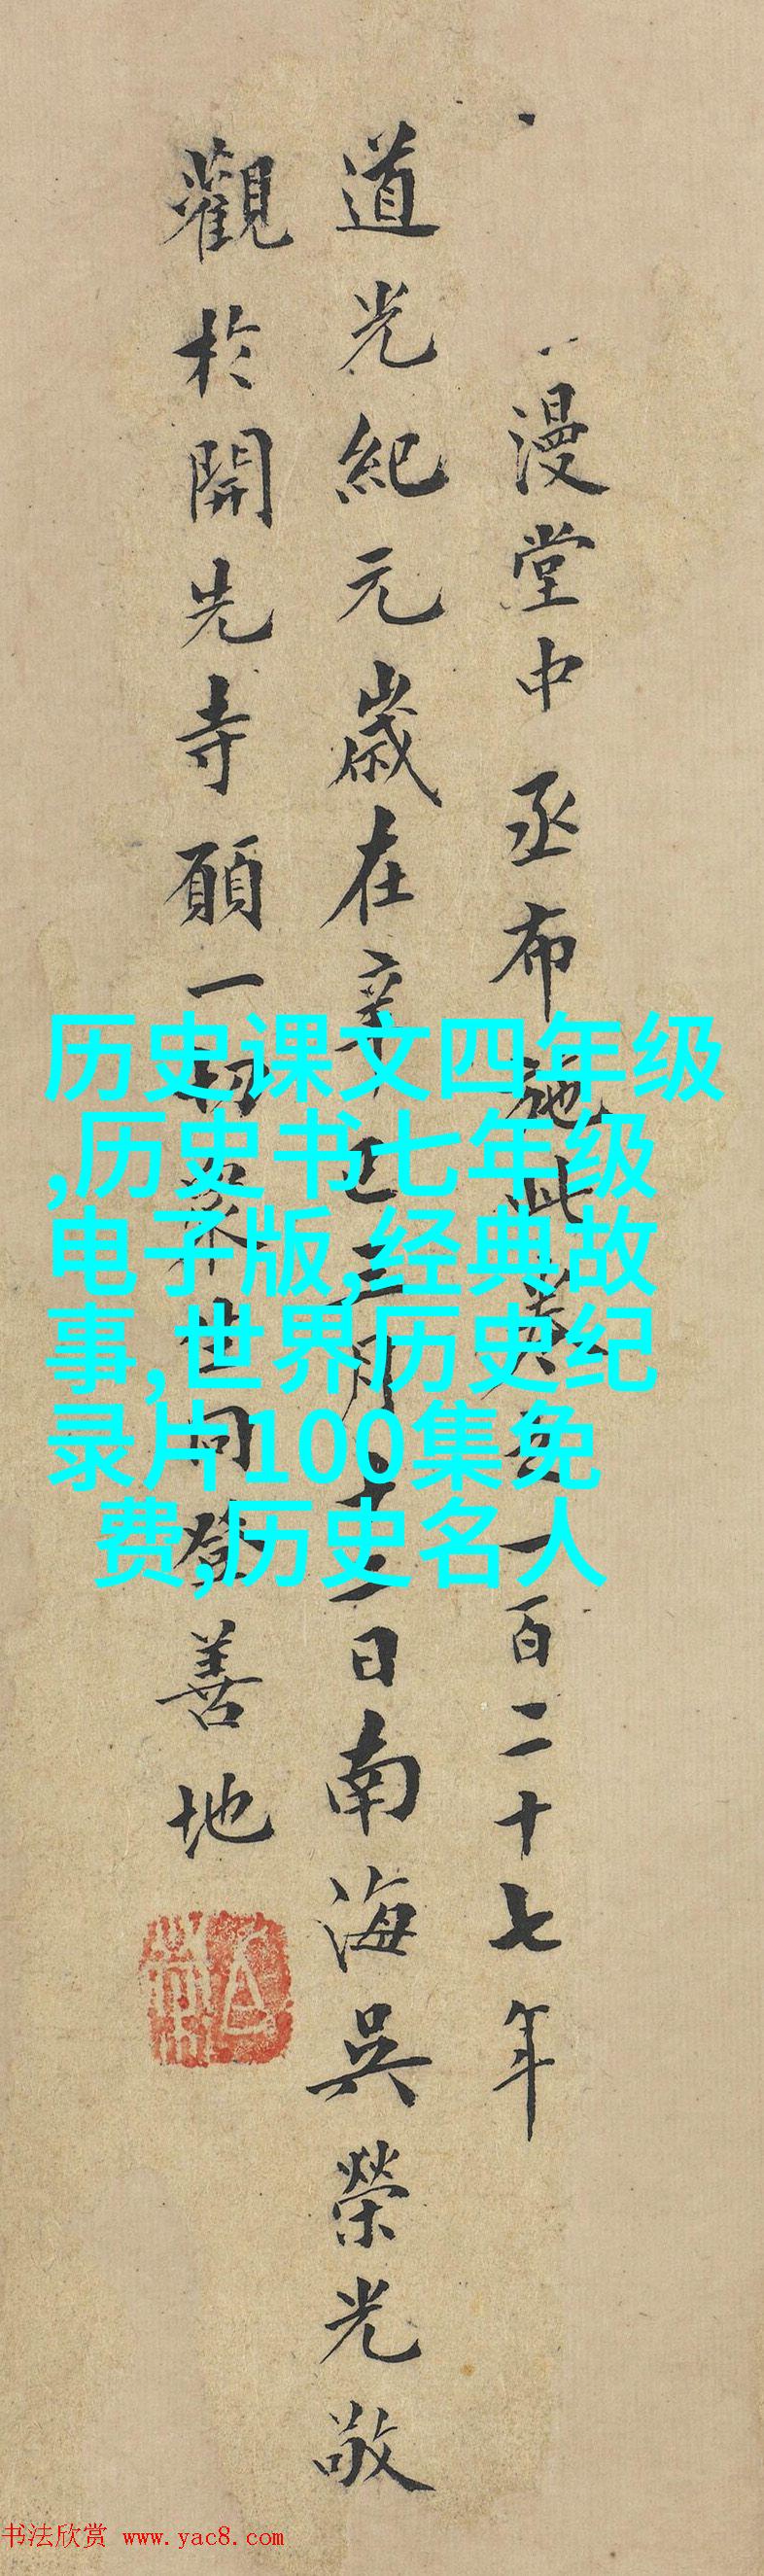 漫堂中丞布施此卷後一百二十七年
道光紀元歲在辛巳三月十二日南海吳榮光敬
觀於開先寺願一切眾生同登善地
历史课文四年级
,历史书七年级
电子版,经典故
事,世界历史纪
录片100集免
费,历史名人
书法欣赏 www.yac8.com